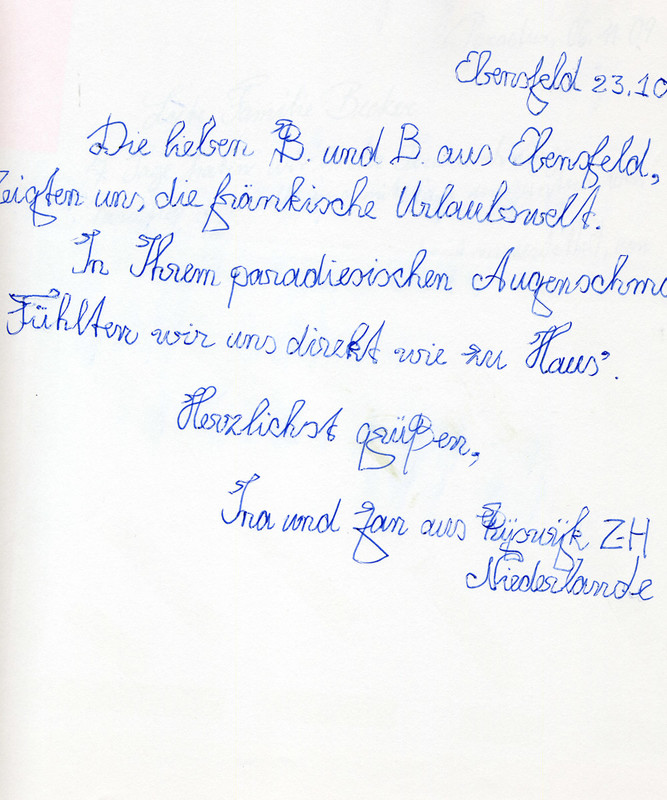 Ebensfeld 23.10
Die lieben B. und B. aus Ebensfeld,
Zeigten uns die fränkische Urlaubswelt.
In Ihrem paradiesischen Augenschmau
Fühlten wir uns direkt wie zu Haus'.
Herzlichst grüßen,
Ina und Jan aus Rijswijk Z-H
Niederlande